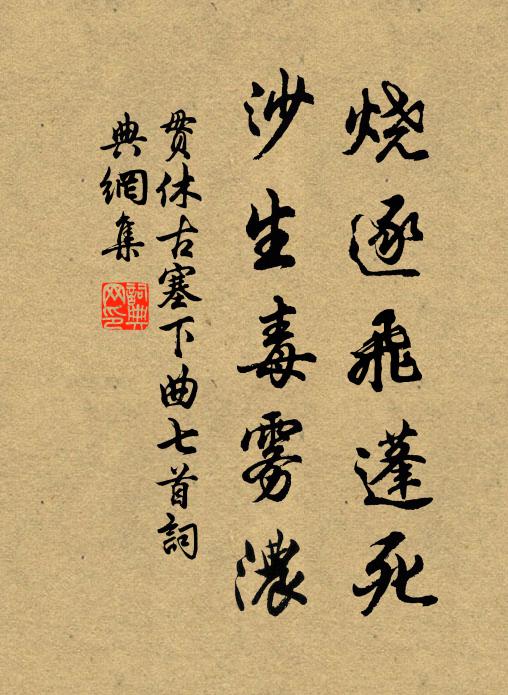 烧逐飞蓬死
沙生毒雾濃
贯休古塞下曲七首詞
典網集
詞典
网印